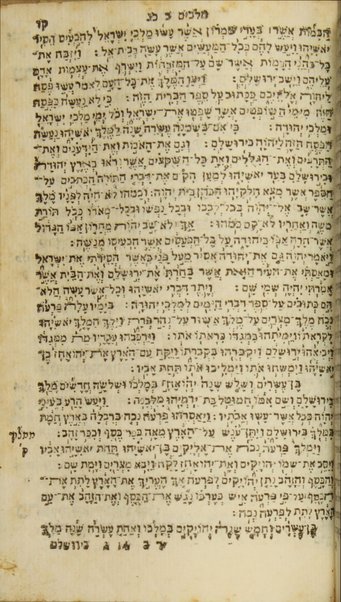 מלכים ב כג
קו
הבמות אשר בערי שמרון אשר עשו מלכי ישראל להכעיס הסיר
יאשיהו ויעש להם ככל המעשים אשר עשה בבית אל: ויזבח את
כל כהני הבמות אשר שם על המזבחות וישרף את עצמות אדם
עליהם וישב ירושלם: ויצו המלך את כל העם לאמר עשו פסח
ליהוה אלהיכם ככתוב על ספר הברית הזה: כי לא נעשה כפסח
הזה מימי השפטים אשר שפטו את ישראל וכל ימי מלכי ישראל
ומלכי יהודה: כי אם בשמנה עשרה שנה למלך יאשיהו נעשה
הפסח הזה ליהוה בירושלם: וגם את האבות ואת הידענים ואת
התרפים ואת הגללים ואת כל השקצים אשר נראו בארץ יהודה
ובירושלם בער יאשיהו למען הקים את דברי התורה הכתבים על
הספר אשר מצא חלקיהו הכהן בית יהוה: וכמהו לא היה לפניו מלך
אשר שב אל יהוה בכל לבבו ובכל נפשו ובכל מאדו ככל תורת
משה ואחריו לא קם כמהו: אך לא שב יהוה מחרון אפו הגדול
אשר חרה אפו ביהודה על כל הכעסים אשר הכעיסו מנשה:
ויאמר יהוה גם את יהודה אסיר מעל פני כאשר הסרתי את ישראל
ומאסתי את העיר הזאת אשר בחרתי את ירושלם ואת הבית אשר
אמרתי יהיה שמי שם: ויתר דברי יאשיהו וכל אשר עשה הלא
הם כתובים על ספר דברי הימים למלכי יהודה: בימיו עלה פרעה
נכה מלך מצרים על מלך אשור על נהר פרת וילך המלך יאשיהו
לקראתו וימיתהו במגדו כראתו אתו: וירכבהו עבדיו מת ממגדו
ויבאהו ירושלם ויקברהו בקברתו ויקח עם הארץ את יהואחז בן
יאשיהו וימשחו אתו וימליכו אתו תחת אביו:
בן עשרים ושלש שנה יהואחז במלכו ושלשה חדשים מלך
בירושלם ושם אמו חמוטל בת ירמיהו מלבנה: ויעש הרע בעיני
יהוה ככל אשר עשו אבתיו: ויאסרהו פרעה נכה ברבלה בארץ חמת
במלך בירושלם ויתן ענש על הארץ מאה ככר כסף וככר זהב:
ממלך ק
וימלך פרעה נכה את אליקים בן יאשיהו תחת יאשיהו אביו
ויסב את שמו יהויקים ואת יהואחז לקח ויבא מצרים וימת שם:
והכסף והזהב נתן יהויקים לפרעה אך העריך את הארץ לתת את
הכסף על פי פרעה איש כערכו נגש את הכסף ואת הזהב את עם
הארץ לתת לפרעה נכה:
בן עשרים וחמש שנה יהויקים במלכו ואחת עשרה שנה מלך
בירושלם